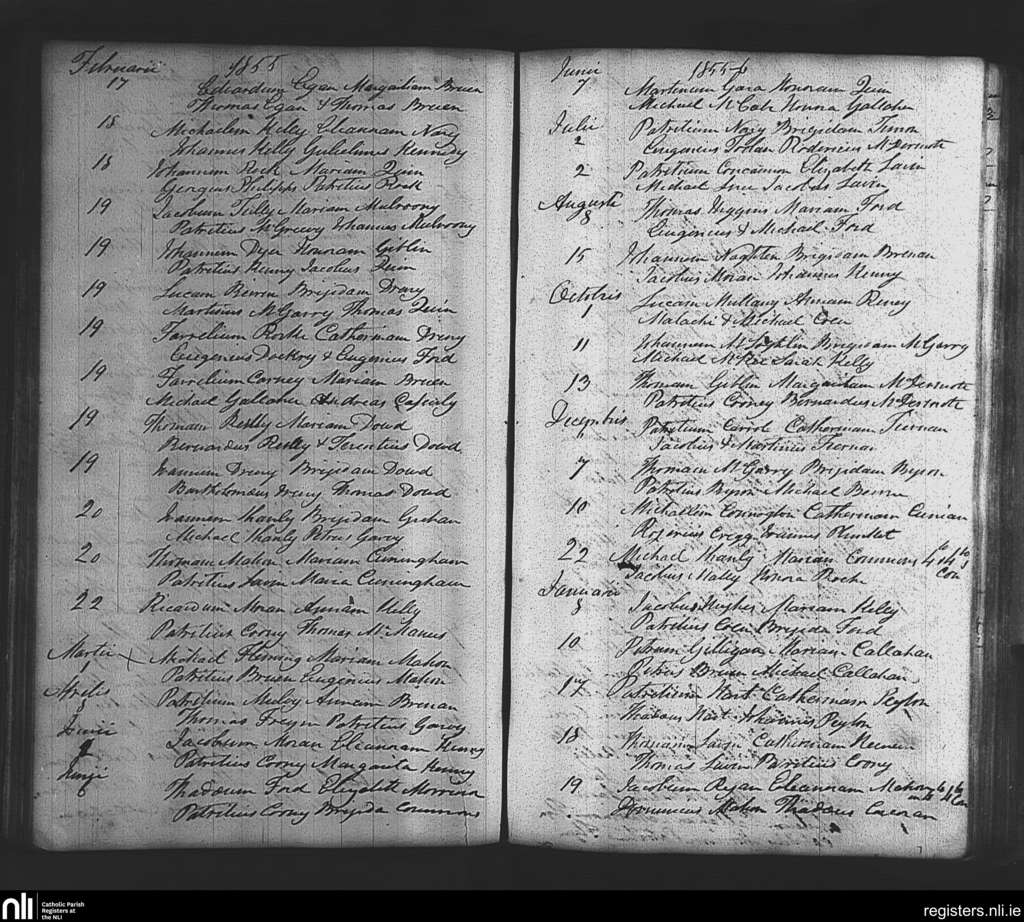 Februarii 1855
17 Edvardum Egan Margaritam Breen
Thomas Egan & Thomas Breen
18 Michaelem Kelly Eleannam Nary
Johannes Kelly Gulielmus Kennedy
18 Johannem Rock Mariam Quin
Georgius Philipps Patritius Rock
19 Jacobum Tully Mariam Mulroony
Patritius McGreevy Johannes Mulroony
19 Johannem Dyer Honoram Giblin
Patritius Kenny Jacobus Quin
19 Lucam Beirn Brigidam Drury
Martinus McGarry Thomas Quin
19 Farrelium Rorke Catherinam Dreny
Eugenius Dockry & Eugenius Ford
19 Farrelium Corney Mariam Breen
Michael Gallaher Andreas Casserly
19 Thomam Reilly Mariam Dowd
Bernardus Reilly & Terentius Dowd
19 Joannem Dreny Brigidam Dowd
Bartholomaus Dreny Thomas Dowd
20 Joannem Hanly Brigidam
Michael Hanly Petrus Garvy
20 Thomam Mahon Mariam Cuningham
Patritius Maria Cuningham
22 Ricardum Moran Annam Kelly
Patritius Coony Thomas McManus
Martii 1 Michael Fleming Mariam Mahon
Patritius Breen Eugenius Mahon
Aprilis 8 Patritium Annam Brenan
Thomas Patritius Garvy
Junii
Jacobum Moran Eleannam Kenny
Patritius Coony Margarita Kenny
6 Thadaeum Ford Elizabeth Morrison
Patritius Coony Brigida Commons
Junii 1855
7 Martinum Gara Honoram Quin
Michael McCabe Honora Gallaher
Julii
2 Patritium Nary Brigidam Timon
Eugenius Rodericus McDermott
2 Patritium Concannon Elizabeth Lavin
Michael Jacobus Lavin
Augusti
8 Thomas Higgins Mariam Ford
Eugenius & Michael Ford
15 Johannem Naghten Brigidam Brenan
Jacobus Moran Johannes Kenny
Octobris
1 Lucam Mullany Annam Reney
Malachi & Michael Coen
11 Johannem McLoghlin Brigidam McGarry
Michael Sarah Kelly
13 Thomam Giblin Margaritam McDermott
Patritius Coony Bernardus McDermott
Decembris
1 Patritium Carrol Catherinam Tiernan
Jacobus & Martinus Tiernan
7 Thomam McGarry Brigidam Byron
Patritius Byron Michael Beirne
10 Michallem Connington Catherinam
Cregg Joannes Plunket
22 Michael Hanly Mariam Commons 4to 4to
Jacobus Nally Honora Roch Con
Januarii
8 Jacobus Hughes Mariam Kelly
Patritius Coen Brigida Ford
10 Petrum Gilligan Mariam Callahan
Petrus Breen Michael Callahan
17 Patritium Hart Catherinam Peyton
Thadaus Hart Johannes Peyton
18 Thomam Lavin Catherinam
Thomas Lavin Patritius Coony
19 Jacobum Ryan Eleannam Mahon
Dominicus Mahon Thadaeus
nli Catholic Parish Registers at the NLI
registers.nli.ie